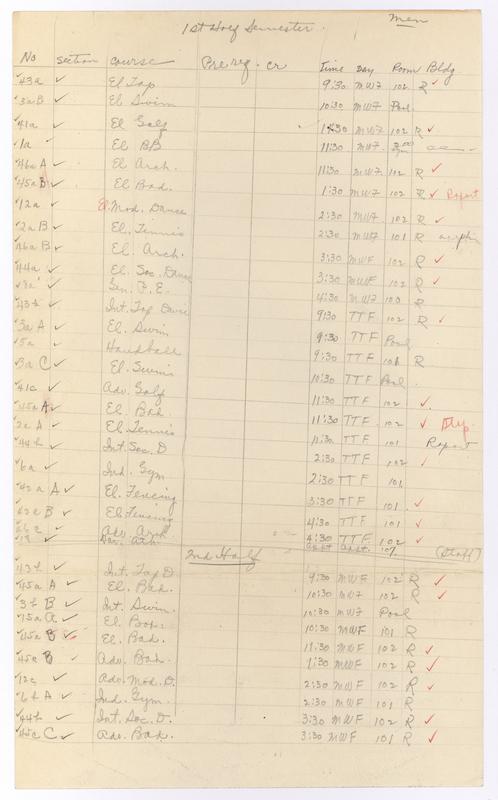 Men
1st Half Semester
No Section Course Prereq. cr Time Day Room Bldg
43a ✓ El Tap 9:30 MWF 102 R ✓
3a B ✓ El Swim 10:30 MWF Pool
41a ✓ El Golf MWF 102 R ✓
1a ✓ El BB 11:30 MWF
46a A ✓ El Arch. 11:30 MWF 102 R ✓
45a B ✓ El Bad. 1:30 MWF 102 R ✓ Repeat
12a ✓ El. Mod. Dance 2:30 MWF 102 R ✓
2a B ✓ El. Tennis 2:30 MWF 101 R
46a B ✓ El. Arch. 3:30 MWF 102 R ✓
44a ✓ El. Soc. Dance 3:30 MWF 102 R ✓
✓ Gen. P. E. 4:30 MWF 100 R
43b ✓ Int. Tap 9:30 TTF 102 R ✓
3a A ✓ El. Swim 9:30 TTF Pool
5a ✓ Handball 9:30 TTF 101 R
3a C ✓ El. Swim 10:30 TTF Pool
41c ✓ Adv. Golf 11:30 TTF 102 ✓
45a A ✓ El. Bad. 11:30 TTF 102 ✓
2a A ✓ El. Tennis 11:30 TTF 101 Repeat
44b ✓ Int. Soc. D 2:30 TTF 102 ✓
6a ✓ Ind. Gym. 2:30 TTF 101
42a A ✓ El. Fencing 3:30 TTF 101 ✓
42a B ✓ El Fencing 4:30 TTF 101 ✓
✓ Adv. Arch. 4:30 TTF 102 ✓
(Staff)
2nd Half
43b ✓ Int. Tap D. 9:30 MWF 102 R ✓
45a A ✓ El. Bad. 10:30 MWF 102 R ✓
3b B ✓ Int. Swim. 10:30 MWF Pool
15a A ✓ El Box. 10:30 MWF 101 R
45a B ✓ El. Bad. 11:30 MWF 102 R ✓
45c B ✓ Adv. Bad. 1:30 MWF 102 R ✓
12c ✓ Adv. Mod. D. 2:30 MWF 102 R ✓
6b A ✓ Ind. Gym. 2:30 MWF 101 R
44b ✓ Int. Soc. D. 3:30 MWF 102 R ✓
45c C ✓ Adv. Bad. 3:30 MWF 101 R ✓